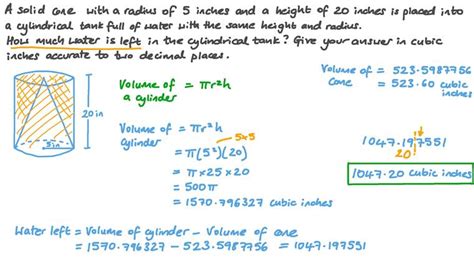 A solid cone with a radius of 5 inches and a height of 20 inches is placed into
a cylindrical tank full of water with the same height and radius.
How much water is left in the cylindrical tank? Give your answer in cubic
inches accurate to two decimal places.
Volume of = πr²h
a cylinder
Volume of = 523.5987756
Cone = 523.60 cubic
inches
20in
5in
Volume of = πr²h
Cylinder
5x5
= π(5²)(20)
= π x 25 x 20
= 500π
= 1570.796327 cubic inches
1047.197551
20
1047.20 cubic inches
Water left = Volume of cylinder - Volume of cone
= 1570.796327 - 523.5987756 = 1047.197551